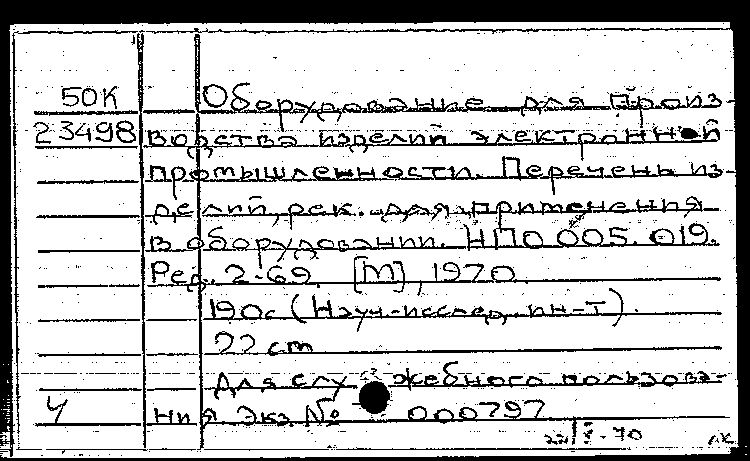 50К Оборудование для произ-
23498 водства изделий электронной
промышленности. Перечень из-
делий, рек. для применения
в оборудовании. НП0 005. 019.
Ред. 2-69. [М], 1970.
190с (Науч.-исслед. ин-т).
22 см
Для служебного пользова-
Ч ния Экз. № 000797
70